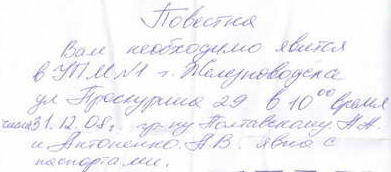 Повестка
Вам необходимо явится
в УПМ №1 г. Железноводска
ул Проскурина 29 в 10⁰⁰ время
числа 31.12.08г. гр-ну Полтавскому А.А.
и Антоненко.А.В. явка с
паспортами.